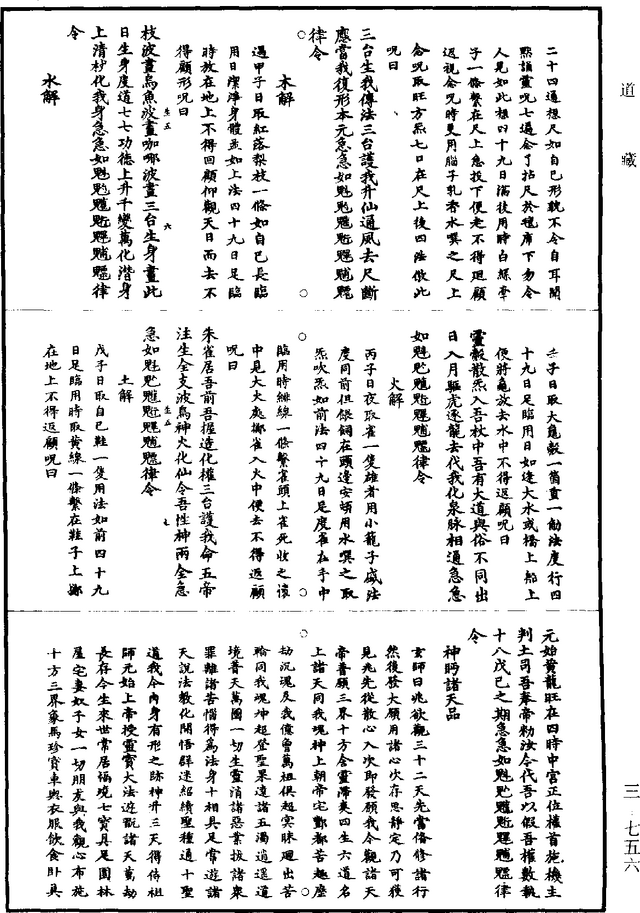 道藏
二十四通想尺如自己形貌不令自耳聞
點誦靈呪七遍念了拈尺於禮席下勿令
人見如此想四十九日滿後用時白絲牽
子一條繫在尺上急投下便走不得迴顧
返視念呪時更用腦子乳香水噀之尺上
念呪取旺方炁七口在尺上後四法倣此
呪曰
三台生我傳法三台護我升仙通風去尺斷
應當我復形本元急急如魁䰢䰫䰡魓䰣
律令
木解
遇甲子日取紅落梨枝一條如自己長臨
用日潔淨身體並如上法四十九日足臨
時放在地上不得回顧仰觀天日而去不
得顧形呪曰
枝波畫烏魚波畫咖哪波畫三台生身畫此
日生身度道七七功德上升千變萬化潛身
上清材化我身急急如律
令
水解
壬子日取大龜殼一箇重一觔法度行四
十九日足臨用日如逢大水或橋上船上
便將龜放去水中不得返顧呪曰
靈穀散炁入吾杖中吾有大道與俗不同出
日入月驅虎逐龍去代我化泉脉相通急急
如律令
火解
丙子日夜取雀一隻雄者用小籠子盛法
度同前但銀銅在頭邊安頓用水噀之取
炁吹炁如前法四十九日足度雀在手中
臨用時緋線一條繫雀頭上雀死收之後
中見大火處擲雀入火中便去不得返顧
呪曰
朱雀居吾前吾握造化權三台護我命五帝
注生全支波鳥神火化仙令吾性神兩全急
急如律令
土解
戊子日取自己鞋一隻用法如前四十九
日足臨用時取黃線一條繫在鞋子上擲
在地上不得返顧呪曰
元始黃龍旺在四時中宮正位權首施機主
判土司吾奉帝勑汝令代吾以假吾權數執
十八戊己之期急急如律
令
神眄諸天品
玄師曰兆欲觀三十二天先當備修諸行
然後發大願用諸心次存思靜定乃可獲
見兆先從散心入次即發願我令觀諸天
帝普願三界十方含靈滯爽四生六道名
上諸天同我魂神上朝帝宅酆都苦趣塵
劫沉魂及我億曾萬祖俱超冥昧迴出苦
輪同我魂神超登聖果遠諸五濁逍遥道
境普天萬國一切生靈消諸惡業拔諸衆
罪離諸苦惱得爲法身十相具足常遊諸
天說法教化開悟群迷紹續聖種通十聖
道我今內身有形之跡神升三天得侍祖
師元始上帝授靈寶大法遊翫諸天萬劫
長存今生來世常居福境七寶具足園林
屋宅妻奴子女一切朋友與我觀心布施
十方三界象馬珍寶車與衣服飲食卧具
三一七五六